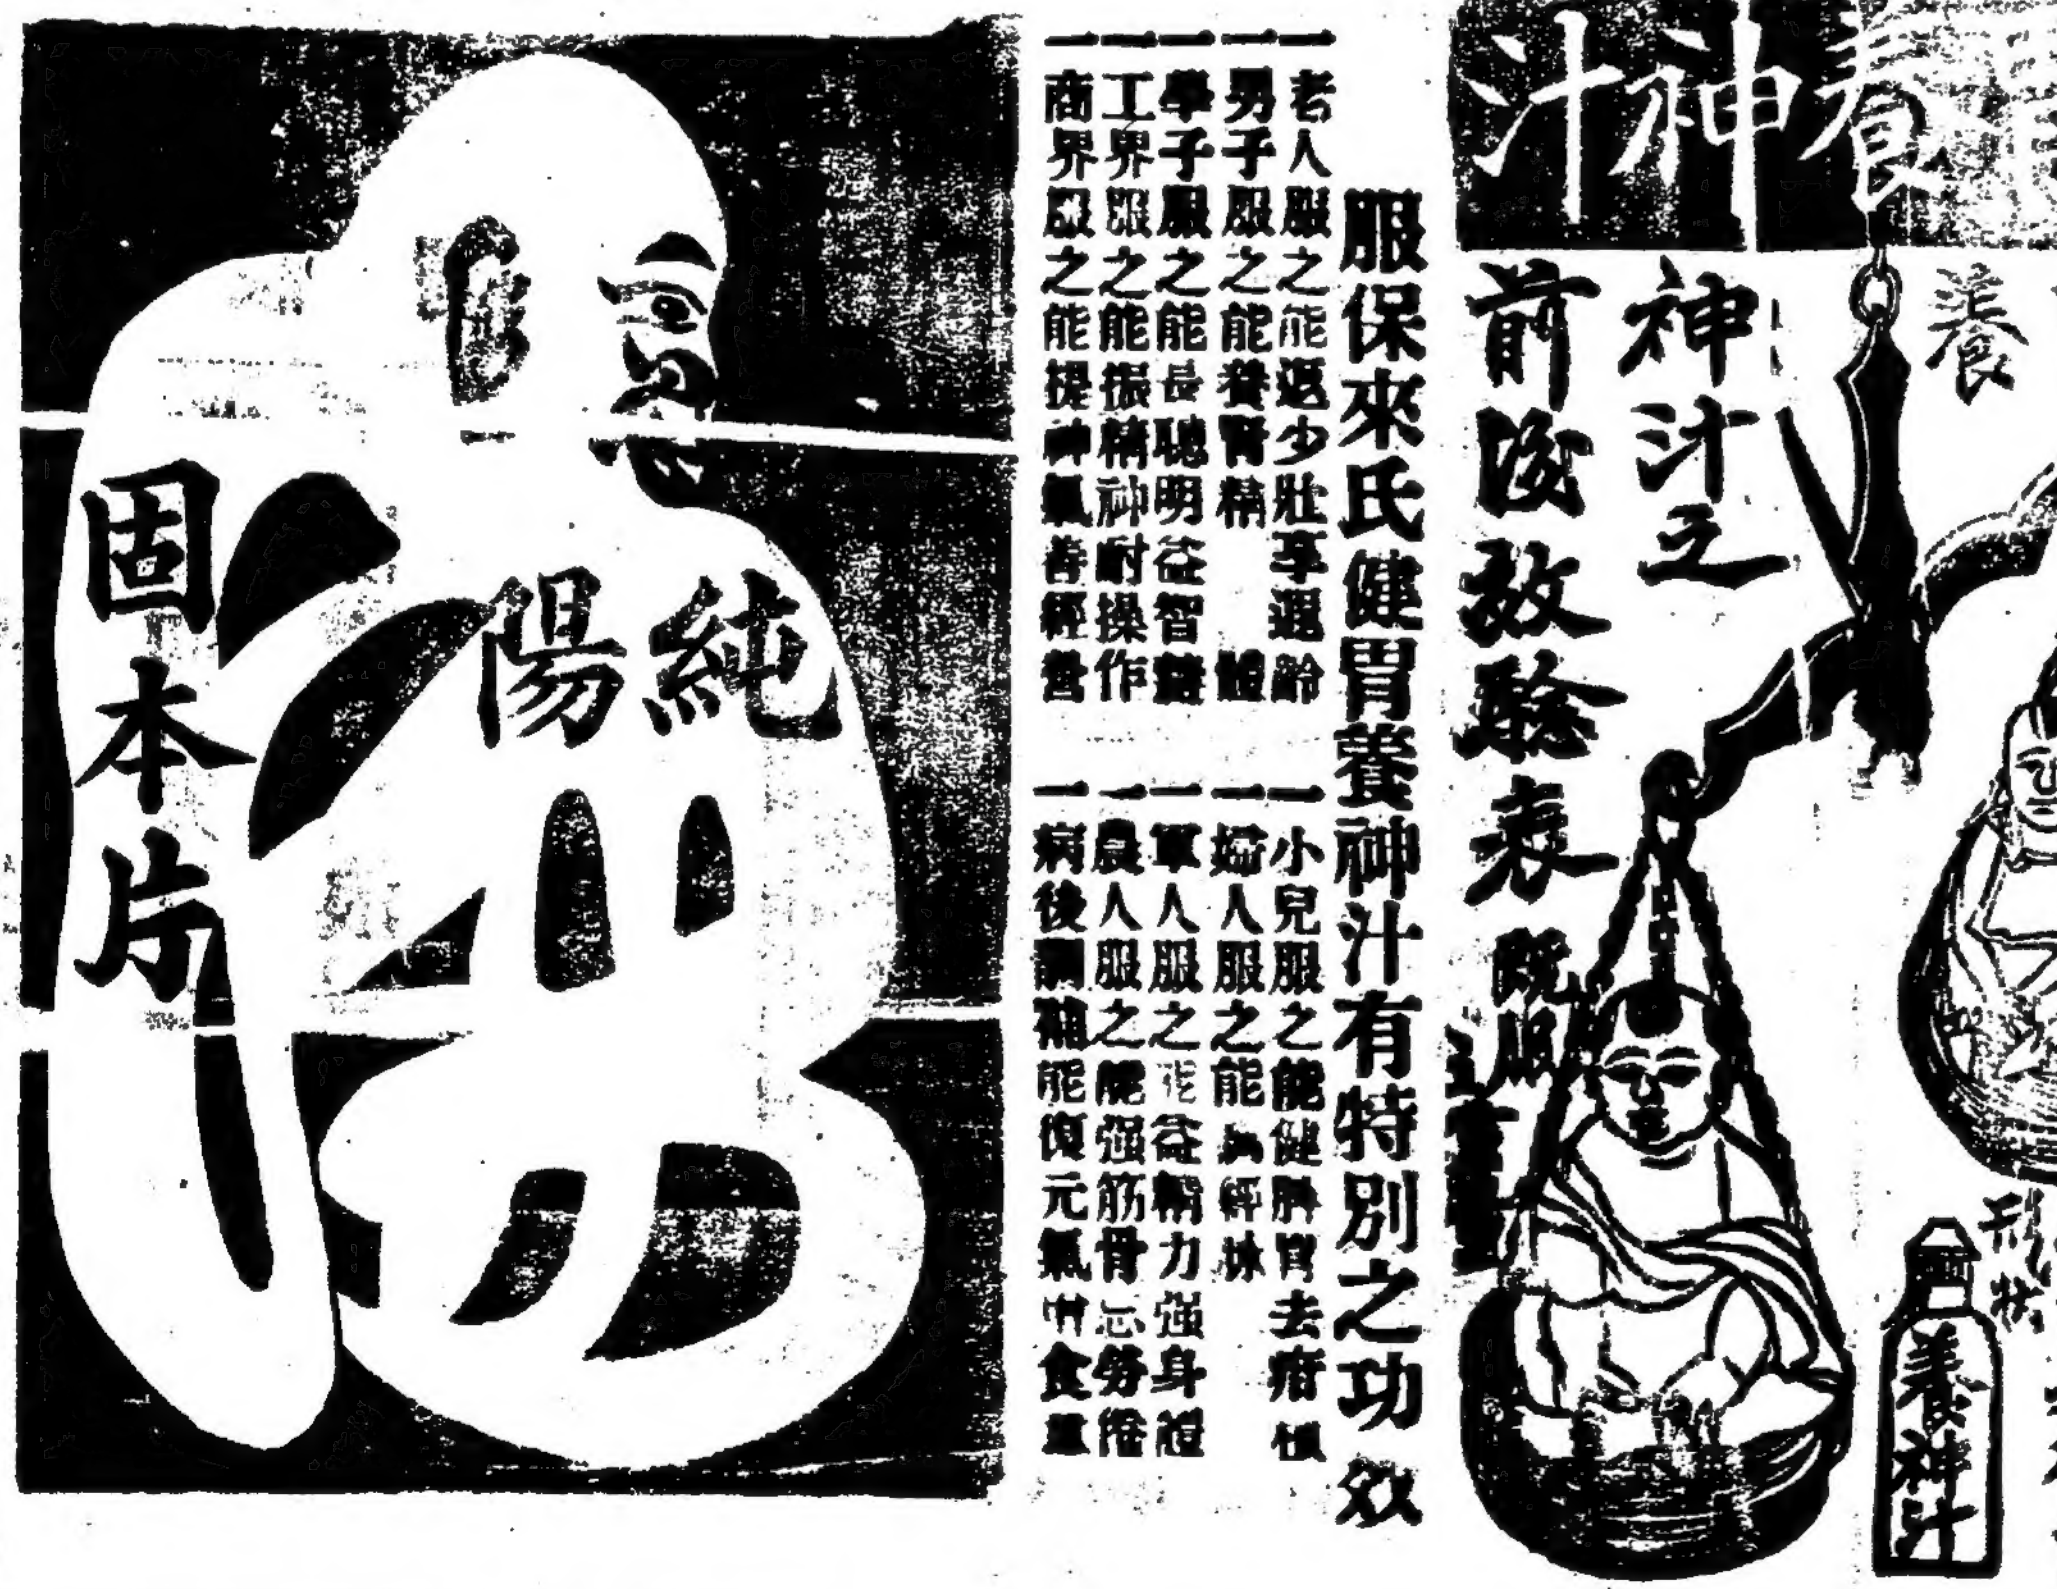 養神汁
養
神汁之
前後效驗表
既服
形狀
養神汁
服保來氏健胃養神汁有特別之功效
一老人服之能返少壯享遐齡
一男子服之能養腎精 體
一學子服之能長聰明益智慧
一工界服之能振精神耐操作
一商界服之能提神氣善經營
一小兒服之能健脾胃去疳積
一婦人服之能 經脉
一軍人服之能益精力强身體
一農人服之能强筋骨忘勞倦
一病後調補能復元氣 食
純陽
固本片